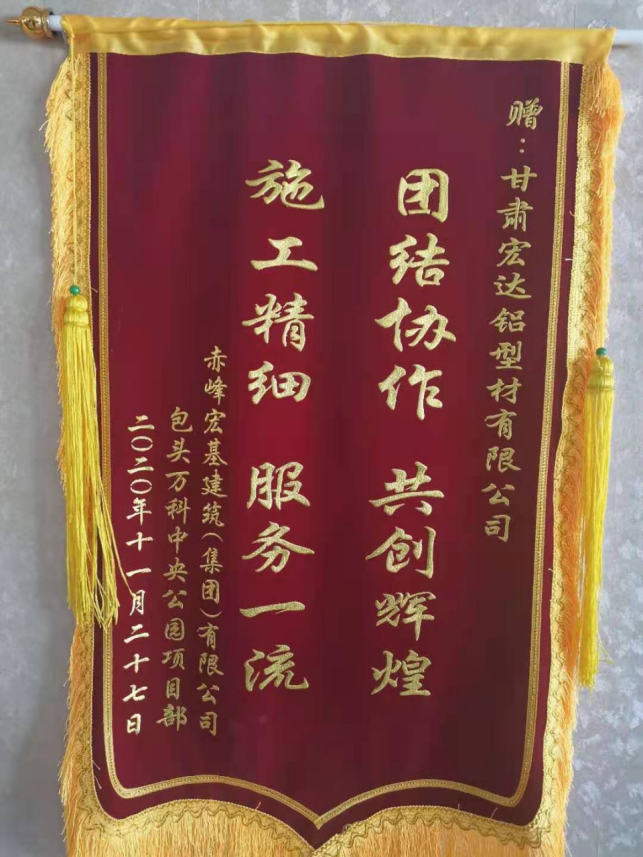 赠：甘肃宏达铝型材有限公司
团结协作 共创辉煌
施工精细 服务一流
赤峰宏基建筑（集团）有限公司
包头万科中央公园项目部
二〇二〇年十一月二十七日